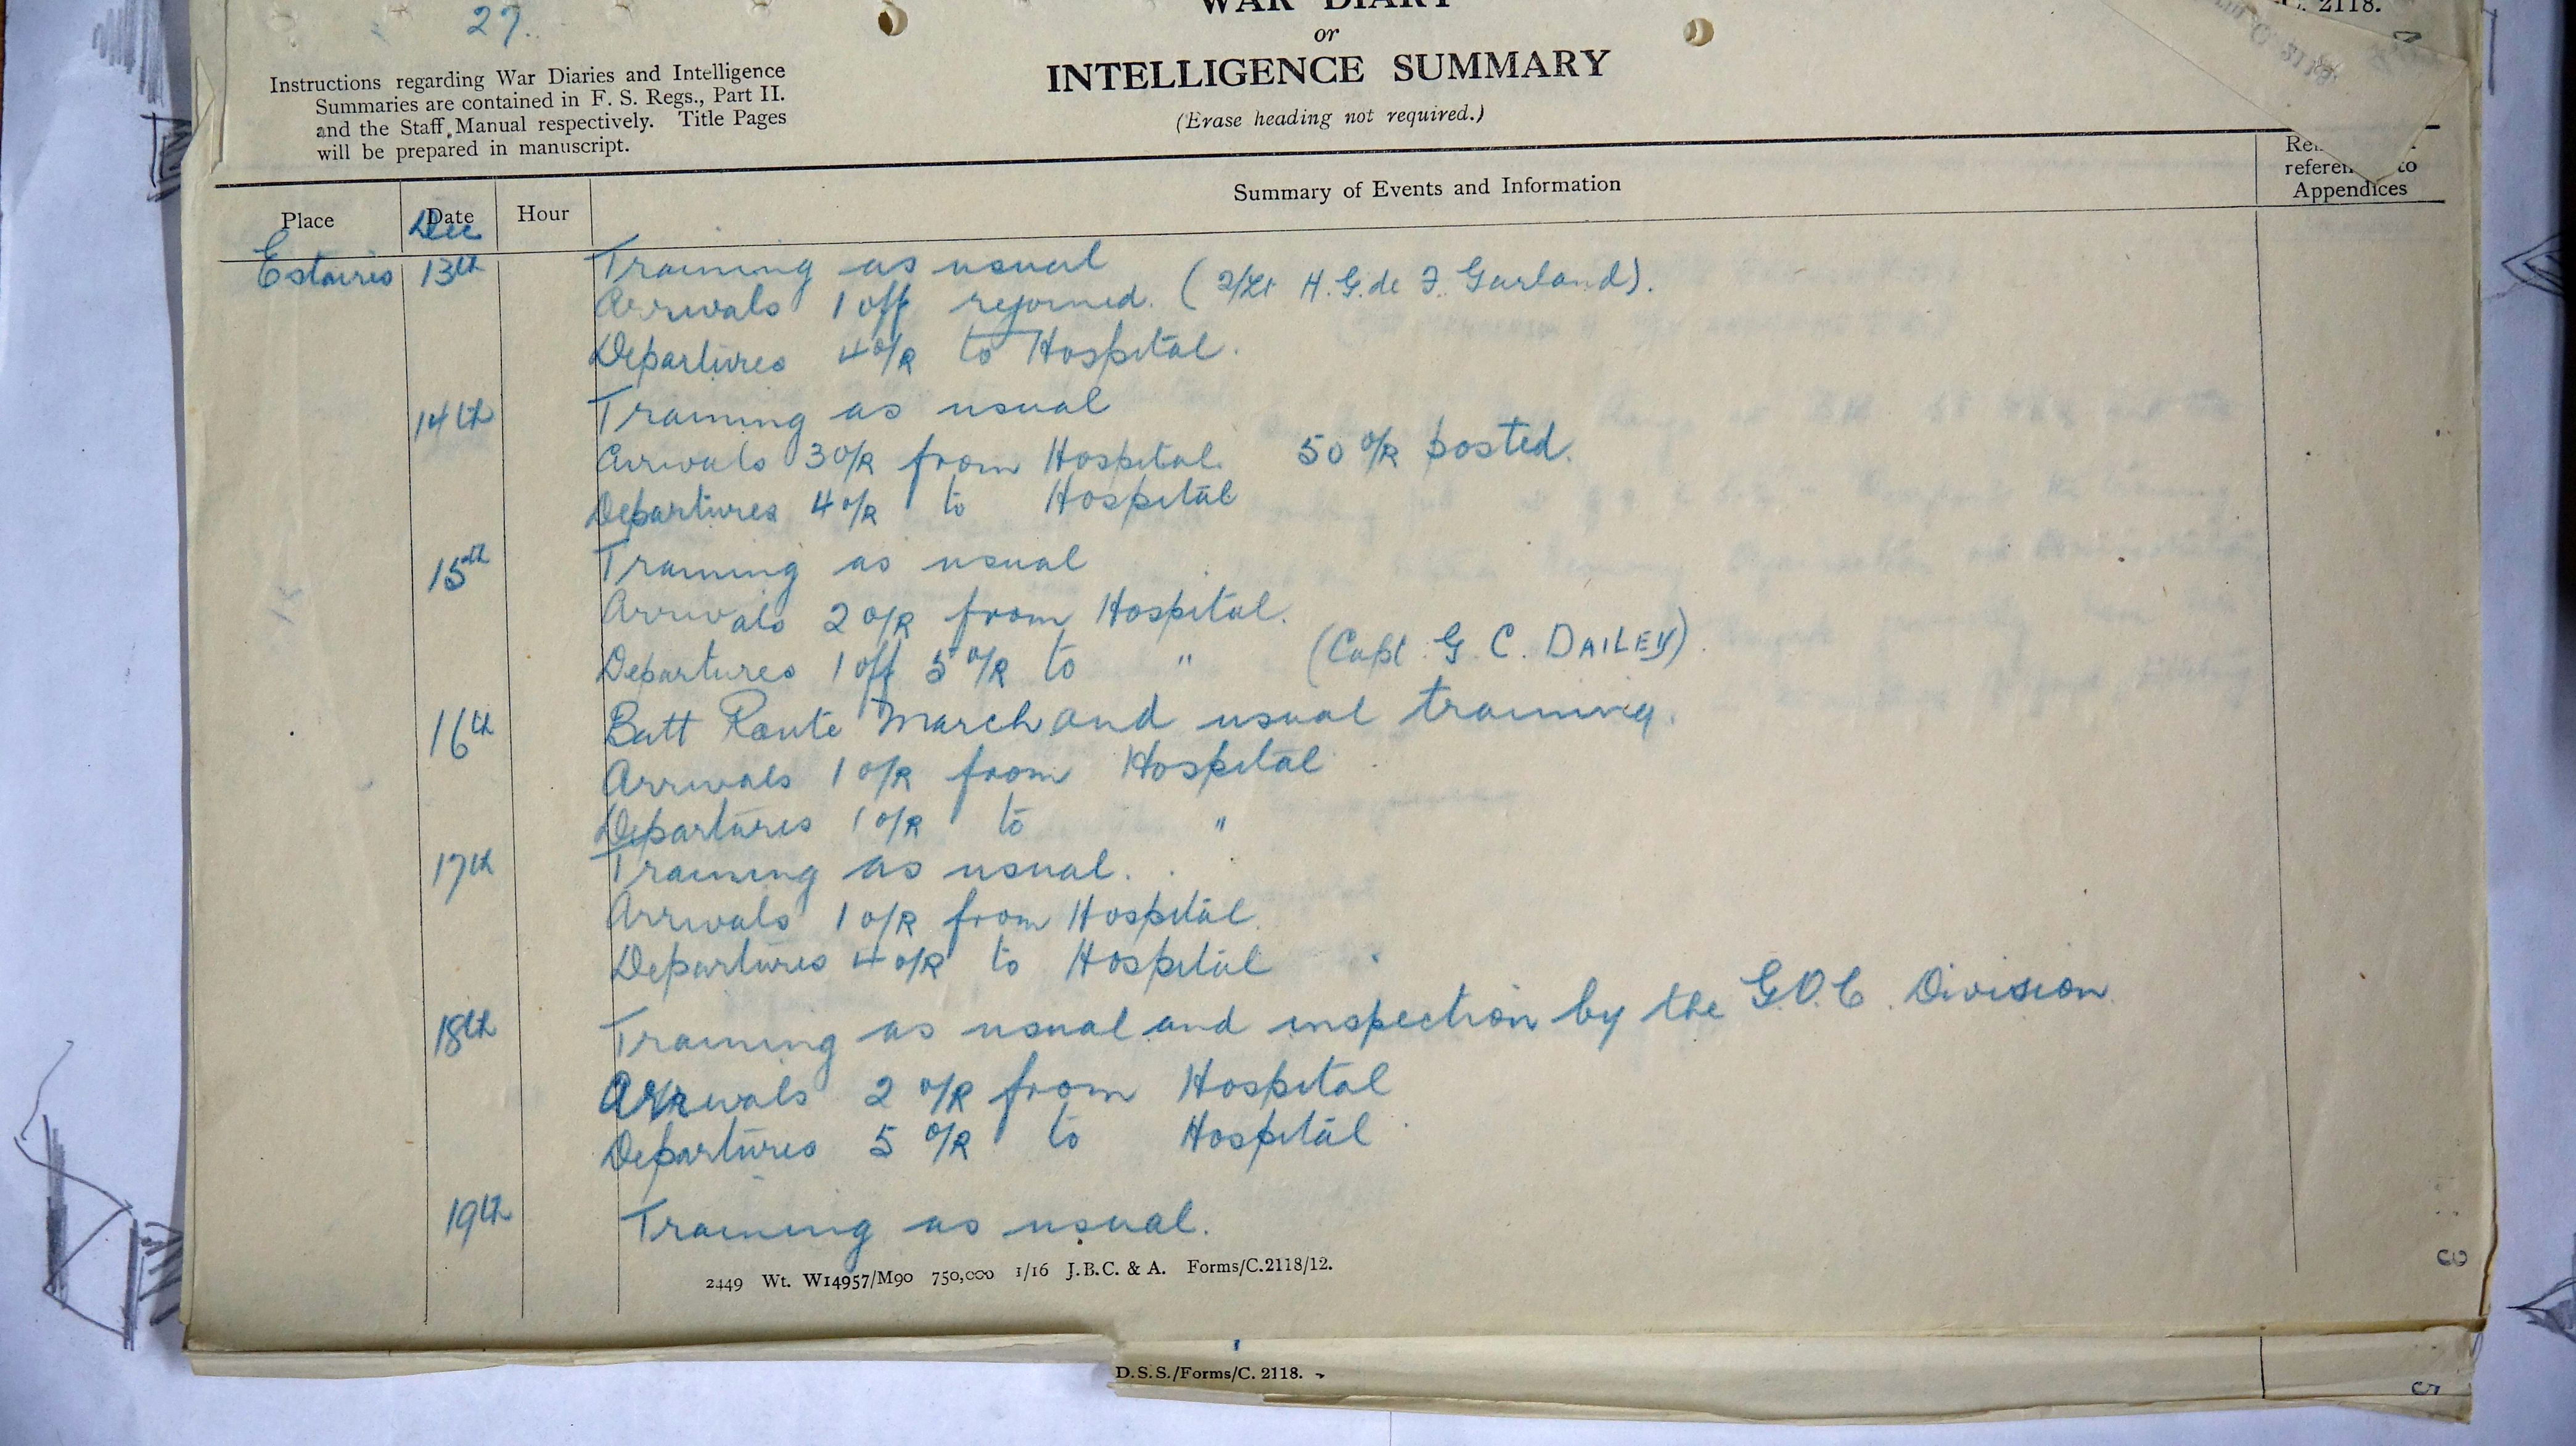 27.
WAR DIARY
C. 2118.
or
INTELLIGENCE SUMMARY
(Erase heading not required.)
Instructions regarding War Diaries and Intelligence
Summaries are contained in F. S. Regs., Part II.
and the Staff Manual respectively. Title Pages
will be prepared in manuscript.
Place Date Hour Summary of Events and Information
Appendices
Dec
Estaires 13th Training as usual
Arrivals 1 off rejoined. (2/Lt H.G. de F. Garland).
Departures 4 o/R to Hospital.
14th Training as usual
Arrivals 3 o/R from Hospital. 50 o/R posted.
Departures 4 o/R to Hospital
15th Training as usual
Arrivals 2 o/R from Hospital.
Departures 1 off 5 o/R to " (Capt G. C. DAILEY).
16th Batt Route March and usual training.
Arrivals 1 o/R from Hospital
Departures 1 o/R to "
17th Training as usual.
Arrivals 1 o/R from Hospital.
Departures 4 o/R to Hospital
18th Training as usual and inspection by the G.O.C. Division
Arrivals 2 o/R from Hospital
Departures 5 o/R to Hospital
19th Training as usual.
2449 Wt. W14957/M90 750,000 1/16 J.B.C. & A. Forms/C.2118/12.
D.S.S./Forms/C. 2118.